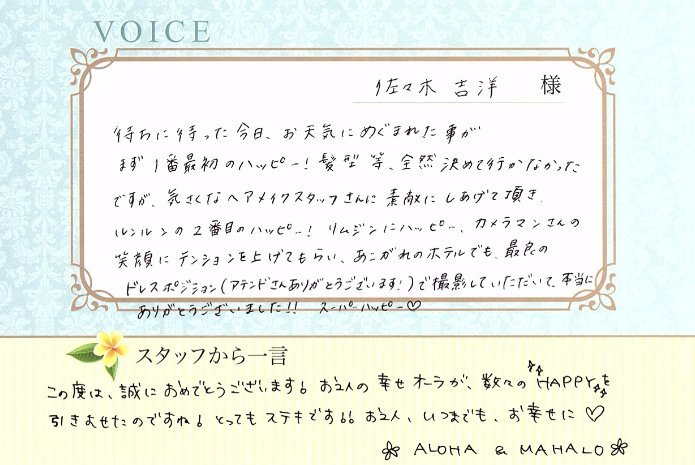 VOICE
佐々木 吉洋 様
待ちに待った今日、お天気にめぐまれた事が
まず1番最初のハッピー!髪型等、全然決めて行かなかった
ですが、気さくなヘアメイクスタッフさんに素敵にしあげて頂き、
ルンルンの2番目のハッピー!リムジンにハッピー、カメラマンさんの
笑顔にテンションを上げてもらい、あこがれのホテルでも、最良の
ドレスポジション(アテンドさんありがとうございます!)で撮影していただいて、本当に
ありがとうございました!! スーパーハッピー♡
スタッフから一言
この度は、誠におめでとうございます! お2人の幸せオーラが、数々のHAPPYを
引きよせたのですね! とってもステキです!! お2人、いつまでも、お幸せに♡
ALOHA & MAHALO